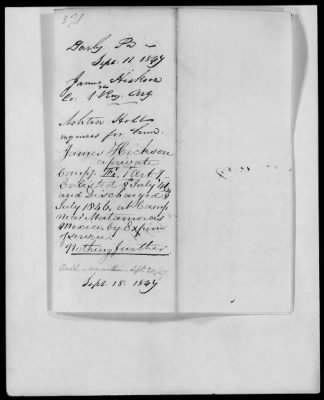 Darby Pa -
Sept. 11. 1847
James Hickson
Co. 1 Reg. Arty.
Ashton Holt
inquires for him.
James Hickson
a private
Comp. 1 Art y
Enlisted 8 July
and Discharged 8
July 1846, at Camp
near Matamoras
Mexico, by Expn
of service
Nothing further
Sept. 20/47
Sept. 18. 1847